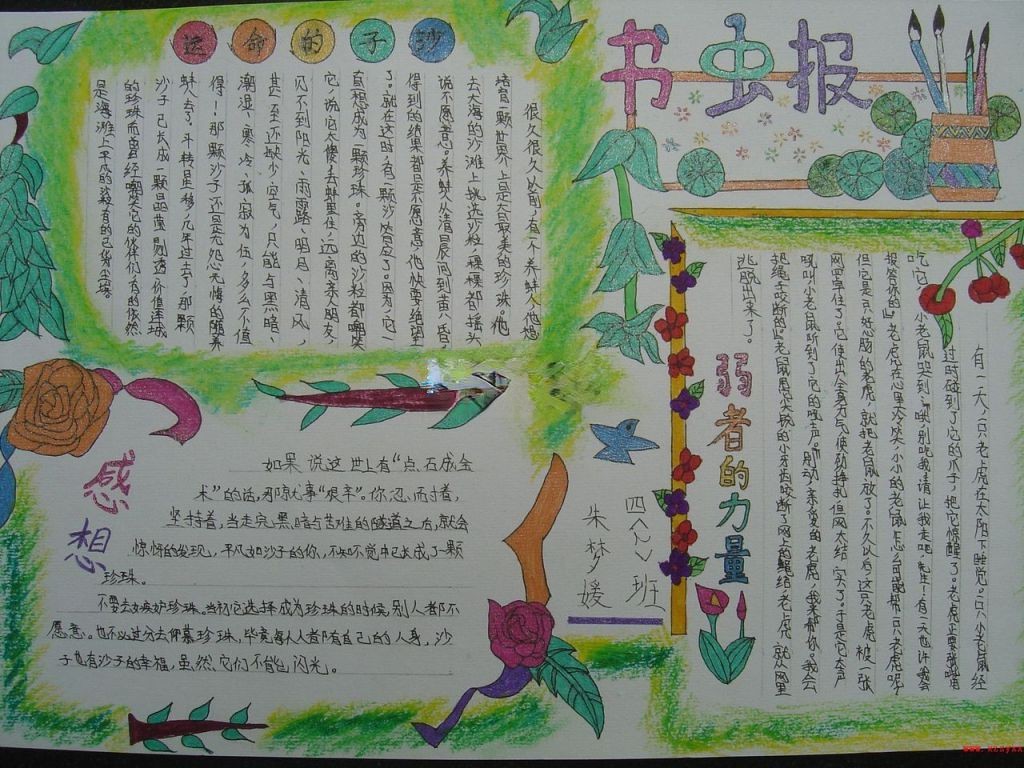 书虫报
沙子的命运
很久很久以前，有一个养蚌人，他想
培育一颗世界上最大最美的珍珠。他
去大海的沙滩上挑选沙粒，一颗颗都摇头
说不愿意。养蚌人从清晨问到黄昏，
得到的结果都是不愿意，他快要绝望
了。就在这时，有一颗沙答应了。因为，它一
直想成为一颗珍珠。旁边的沙粒都嘲笑
它，说它太傻，去蚌里住，远离亲人朋友，
见不到阳光、雨露、明月、清风，
甚至还缺少空气，只能与黑暗、
潮湿、寒冷、孤寂为伍，多么不值
得！那颗沙子还是无怨无悔的随养
蚌人去了。斗转星移，几年过去了，那颗
沙子已长成一颗晶莹剔透、价值连城
的珍珠，而曾经嘲笑它的伙伴们，有的依然
是海滩上平凡的沙粒，有的已化为尘埃
弱者的力量
有一天，一只老虎在太阳下睡觉。一只小老鼠经
过时碰到了它的爪子，把它惊醒了。老虎正要张嘴
吃它，小老鼠哭到："哦，别吃我，请让我走吧，先生！有一天也许我会
报答你的。"老虎在心里大冷笑，小小的老鼠怎么可能帮一只老虎呢？
但它是只好心肠的老虎，就把老鼠放了。不久以后，这只老虎被一张
网罩住了。它使出全身力气使劲挣扎，但网太结实了。于是它大声
吼叫，小老鼠听到了它的吼声。"别动，亲爱的老虎，我来帮你。我会
把绳子咬断的。"老鼠用尖锐的小牙齿咬断了网上的绳结，老虎就从网里
逃脱出来了。
感想
如果说这世上有"点石成金
术"的话，那就事"艰辛"。你忍而持着，
坚持着，当走完黑暗与苦难的隧道之后，就会
惊讶的发现，平凡如沙子的你，不知不觉中已长成了一颗
珍珠。
不要去嫉妒珍珠，当初它选择成为珍珠的时候，别人都不
愿意。也不必过分去仰慕珍珠，毕竟每人人者都有自己的人身，沙
子也有沙子的幸福，虽然，它们不能闪光。
四〈〉班
朱梦媛